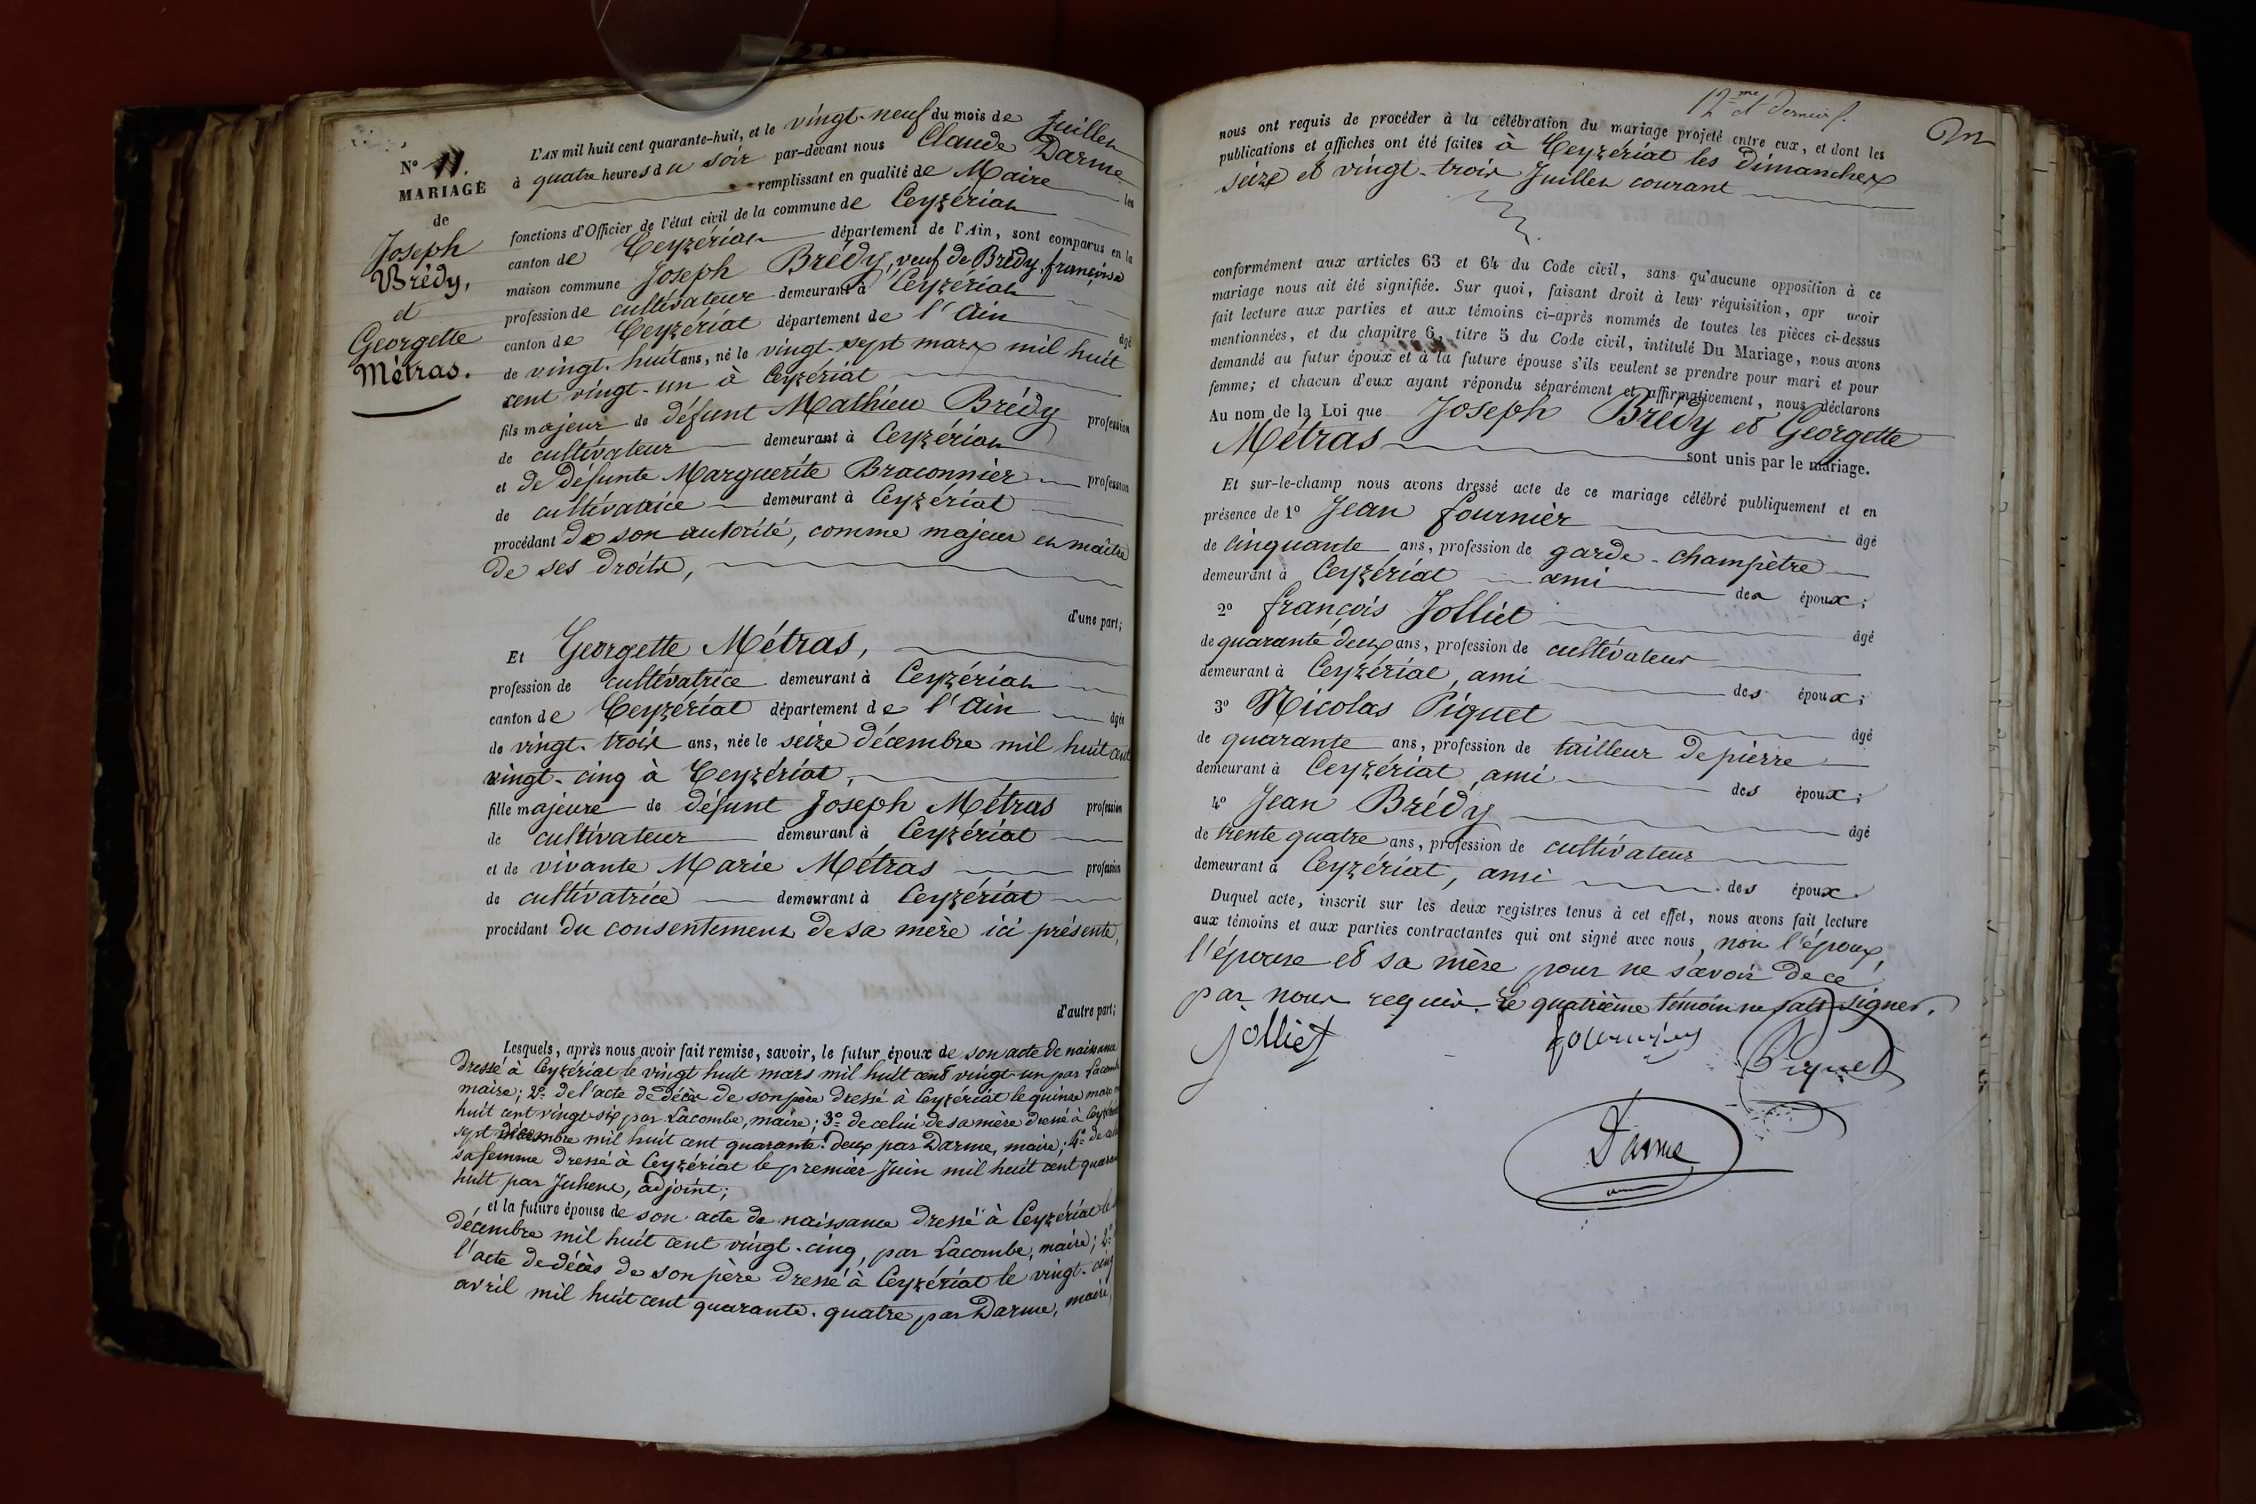 N° 11.
MARIAGE
de
Joseph
Brédy,
et
Georgette
Métras.
L'AN mil huit cent quarante-huit, et le vingt-neuf du mois de Juillet
à quatre heures du soir par-devant nous Claude Darme
remplissant en qualité de Maire les
fonctions d'Officier de l'état civil de la commune de Ceyzériat
canton de Ceyzériat département de l'Ain, sont comparus en la
maison commune Joseph Brédy, veuf de Brédy françoise
profession de cultivateur demeurant à Ceyzériat
canton de Ceyzériat département de l'Ain âgé
de vingt-huit ans, né le vingt-sept mars mil huit
cent vingt-un à Ceyzériat
fils majeur de défunt Mathieu Brédy profession
de cultivateur demeurant à Ceyzériat
et de défunte Marguerite Braconnier profession
de cultivatrice demeurant à Ceyzériat
procédant de son autorité, comme majeur et maître
de ses droits,
d'une part;
Et Georgette Métras,
profession de cultivatrice demeurant à Ceyzériat
canton de Ceyzériat département de l'Ain âgée
de vingt-trois ans, née le seize décembre mil huit cent
vingt-cinq à Ceyzériat,
fille majeure de défunt Joseph Métras profession
de cultivateur demeurant à Ceyzériat
et de vivante Marie Métras profession
de cultivatrice demeurant à Ceyzériat
procédant du consentement de sa mère ici présente,
d'autre part;
Lesquels, après nous avoir fait remise, savoir, le futur époux de son acte de naissance
dressé à Ceyzériat le vingt huit mars mil huit cent vingt-un par Lacombe
maire; 2° de l'acte de décès de son père dressé à Ceyzériat le quinze mars
huit cent vingt-six par Lacombe, maire; 3° de celui de sa mère dressé à Ceyzériat
sept décembre mil huit cent quarante-deux par Darme, maire; 4° de celui
sa femme dressé à Ceyzériat le premier Juin mil huit cent quarante
huit par Juhene, adjoint;
et la future épouse de son acte de naissance dressé à Ceyzériat le
décembre mil huit cent vingt-cinq, par Lacombe, maire; 2°
l'acte de décès de son père dressé à Ceyzériat le vingt-cinq
avril mil huit cent quarante-quatre par Darme, maire,
12me et dernier f.
nous ont requis de procéder à la célébration du mariage projeté entre eux, et dont les
publications et affiches ont été faites à Ceyzériat les dimanches
seize et vingt-trois Juillet courant
conformément aux articles 63 et 64 du Code civil, sans qu'aucune opposition à ce
mariage nous ait été signifiée. Sur quoi, faisant droit à leur réquisition, apr avoir
fait lecture aux parties et aux témoins ci-après nommés de toutes les pièces ci-dessus
mentionnées, et du chapitre 6, titre 5 du Code civil, intitulé Du Mariage, nous avons
demandé au futur époux et à la future épouse s'ils veulent se prendre pour mari et pour
femme; et chacun d'eux ayant répondu séparément et affirmativement, nous déclarons
Au nom de la Loi que Joseph Brédy et Georgette
Métras sont unis par le mariage.
Et sur-le-champ nous avons dressé acte de ce mariage célébré publiquement et en
présence de 1° Jean fournier âgé
de cinquante ans, profession de garde-champêtre
demeurant à Ceyzériat ami des époux;
2° françois Jolliet âgé
de quarante deux ans, profession de cultivateur
demeurant à Ceyzériat, ami des époux;
3° Nicolas Piquet âgé
de quarante ans, profession de tailleur de pierre
demeurant à Ceyzériat, ami des époux;
4° Jean Brédy âgé
de trente quatre ans, profession de cultivateur
demeurant à Ceyzériat, ami des époux.
Duquel acte, inscrit sur les deux registres tenus à cet effet, nous avons fait lecture
aux témoins et aux parties contractantes qui ont signé avec nous, non l'époux,
l'épouse et sa mère pour ne savoir de ce
par nous requis. Le quatrième témoin ne sait signer.
jolliet fournier Piquet
Darme